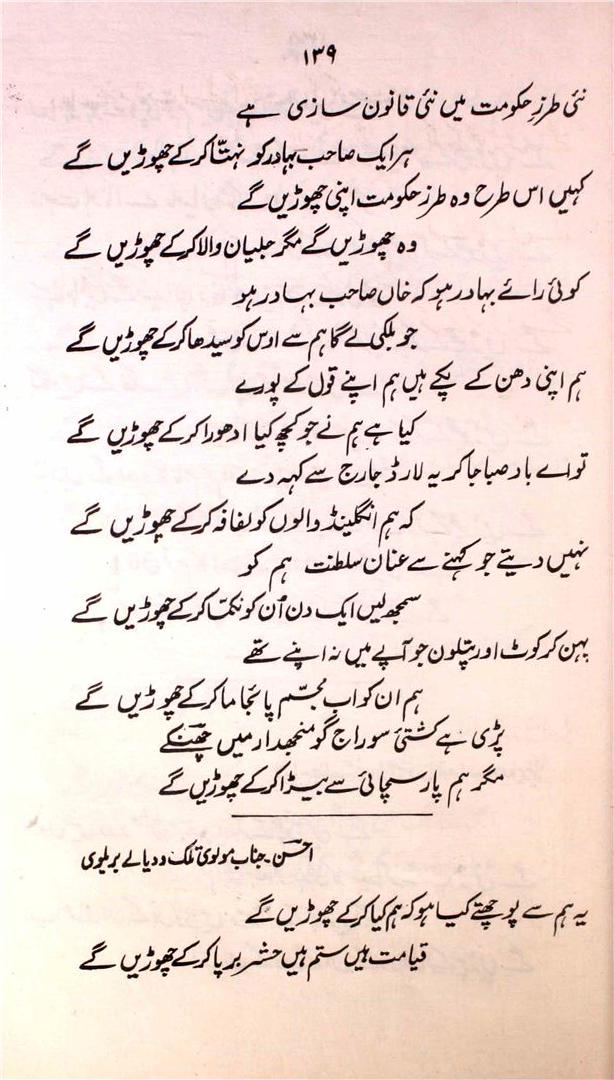 ۱۳۹
نئی طرزِ حکومت میں نئی قانون سازی ہے
ہر ایک صاحب بہادر کو نہتّا کر کے چھوڑیں گے
کہیں اس طرح وہ طرز حکومت اپنی چھوڑیں گے
وہ چھوڑیں گے مگر جلیان والا کر کے چھوڑیں گے
کوئی رائے بہادر ہو کہ خاں صاحب بہادر ہو
جو بلکی لے گا ہم سے اوس کو سیدھا کر کے چھوڑیں گے
ہم اپنی دھن کے پکے ہیں ہم اپنے قول کے پورے
کیا ہے ہم نے جو کچھ کیا ادھورا کر کے چھوڑیں گے
تو اے باد صبا جا کر یہ لارڈ جارج سے کہہ دے
کہ ہم انگلینڈ والوں کو لفافہ کر کے چھوڑیں گے
نہیں دیتے جو کہنے سے عنان سلطنت ہم کو
سمجھ لیں ایک دن اُن کو نکمّا کر کے چھوڑیں گے
پہن کر کوٹ اور پتلون جو آپے میں نہ اپنے تھے
ہم ان کو اب مجسّم پائجاما کر کے چھوڑیں گے
پڑی ہے کشتیٔ سوراج گو منجھدار میں چھنکے
مگر ہم پار سچائی سے بیڑا کر کے چھوڑیں گے
احسن۔ جناب مولوی تلک ودیالے بریلوی
یہ ہم سے پوچھتے کیا ہو کہ ہم کیا کر کے چھوڑیں گے
قیامت ہیں ستم ہیں حشر برپا کر کے چھوڑیں گے